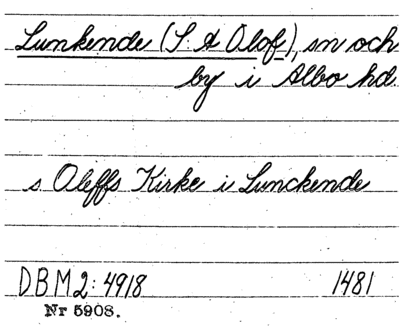 Lunkende (S. t Olof), sn och
by i Albo hd.
s Oleffs Kirke i Lunckende
DBM2:4918 1481
Nr 5908.